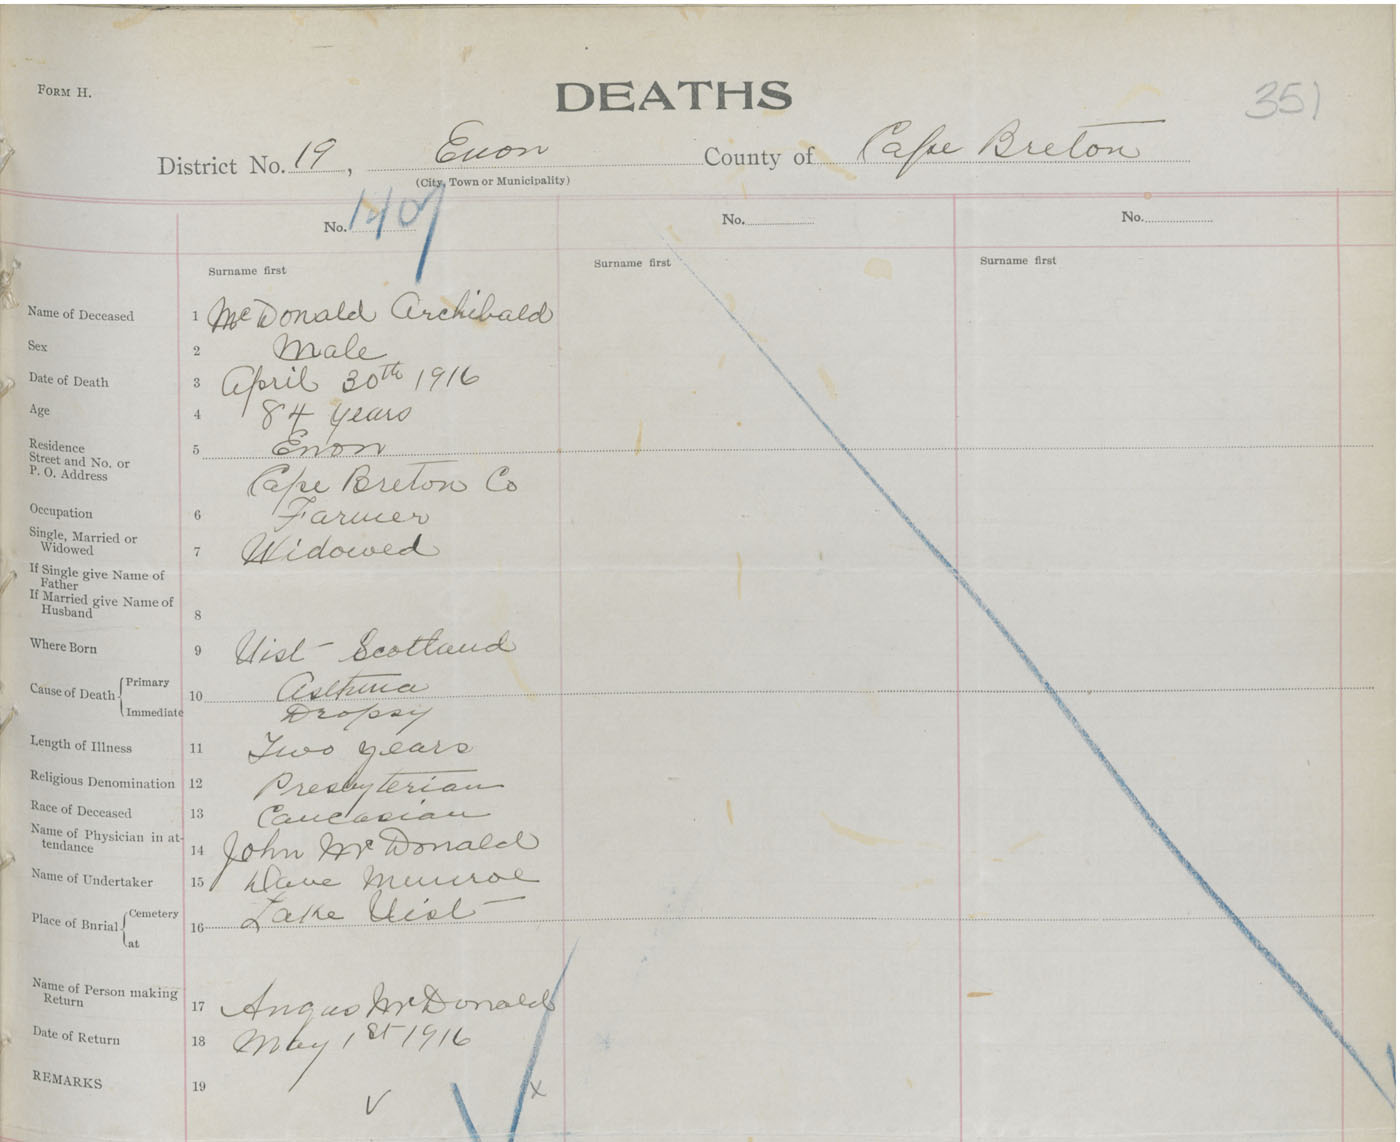 FORM H.
DEATHS
351
District No. 19, Enon County of Cape Breton
(City, Town or Municipality)
No. 1407 No. No.
Surname first Surname first Surname first
Name of Deceased 1 McDonald Archibald
Sex 2 Male
Date of Death 3 April 30th 1916
Age 4 84 years
Residence 5 Enon
Street and No. or
P. O. Address Cape Breton Co
Occupation 6 Farmer
Single, Married or
Widowed 7 Widowed
If Single give Name of
Father
If Married give Name of
Husband 8
Where Born 9 Uist - Scotland
Cause of Death Primary 10 Asthma
Immediate Dropsy
Length of Illness 11 Two years
Religious Denomination 12 Presbyterian
Race of Deceased 13 Caucasian
Name of Physician in at-
tendance 14 John McDonald
Name of Undertaker 15 Dave Munroe
Place of Burial Cemetery 16 Lake Uist
at
Name of Person making
Return 17 Angus McDonald
Date of Return 18 May 1st 1916
REMARKS 19